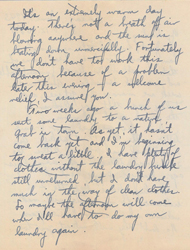 It's an extremely warm day
today. There's not a breath of air
blowing anywhere and the sun is
beating down unmercifully. Fortunately
we don't have to work this
afternoon because of a problem
late this evening. A welcome
relief, I assure you.
Two weeks ago a bunch of us
sent some laundry to a
in town. As yet, it hasn't
come back yet and I'm beginning
to sweat a little. I have plenty of
clothes without the laundry
still but I don't have
much in the way of clean clothes.
So maybe the afternoon will come
when I'll have to do my own
laundry again.